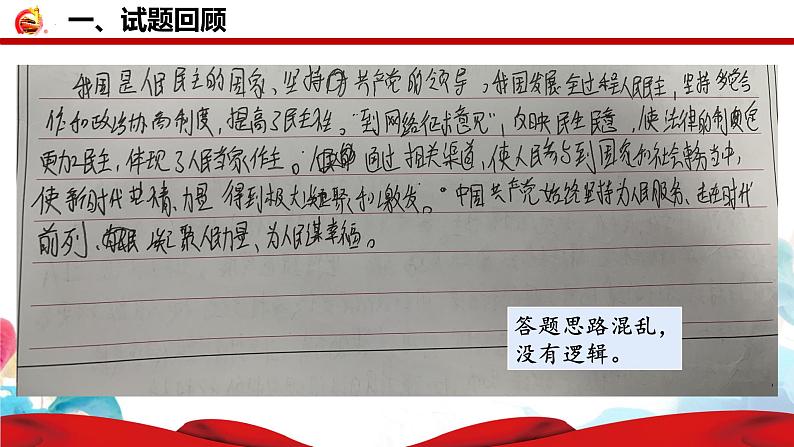 一、试题回顾
我国是人民民主的国家、坚持中共产党的领导,我国发展全过程人民民主,坚持多党合
作和政治协商制度,提高了民主性。"到网络征求意见",反映民生民意,使法律的制定
更加民主,体现了人民当家作主。通过相关渠道,使人民参与到国家和社会事务当中,
使新时代 力量得到极大凝聚和激发。中国共产党始终坚持为人民服务、走在时代
前列、凝聚人民力量、为人民谋幸福。
答题思路混乱,
没有逻辑。